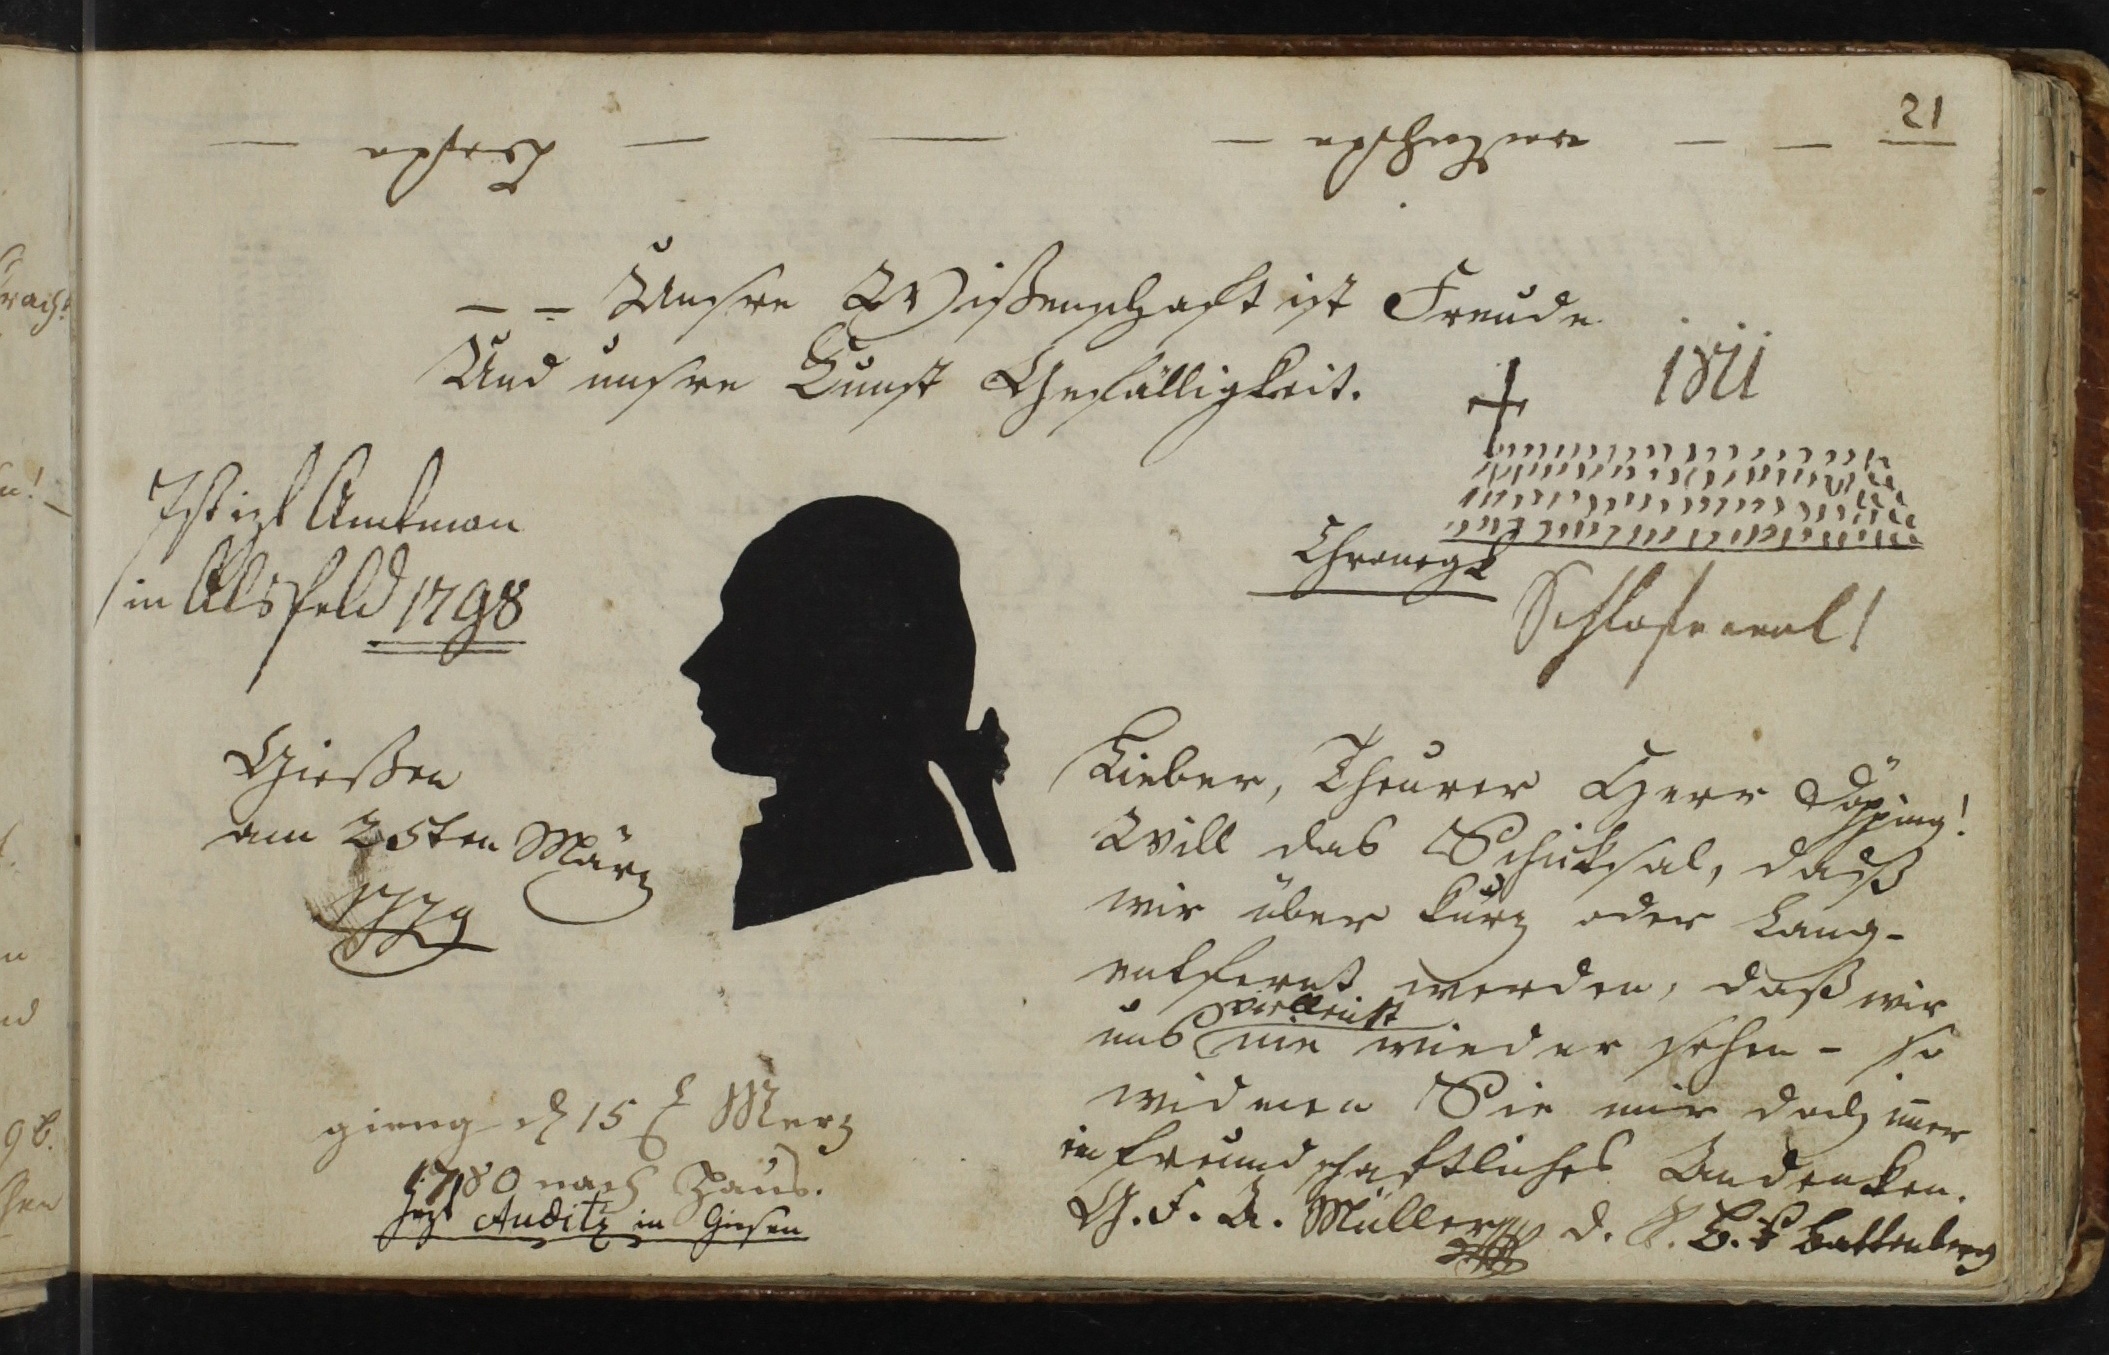 21
– – Unsre Wißenschaft ist Freude
Und unsre Kunst Gefälligkeit.
1811
Chronegk
Ist izt Amtman
in Alsfeld 1798
Schlafe wohl!
Gießen
am 25ten März
1779
Lieber, Theurer Herr Töpping!
Will das Schicksal, daß
wir über kurz oder lang –
entfernt werden, daß wir
uns vielleicht nie wieder sehen – so
widmen Sie mir doch imer
ein freundschaftliches Andenken.
G. F. A. Müller d. R. B. a Battenberg
gieng d 15 t Merz
1780 nach Haus.
jezt Auditr in Giesen